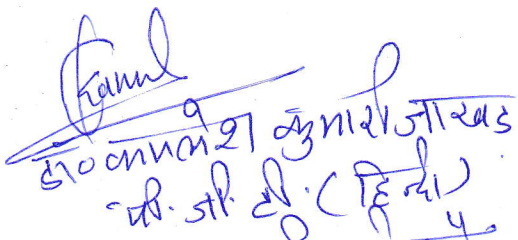 Kamal
डा० कमलेश कुमारी जाखड
पी.जी.टी. (हिन्दी)